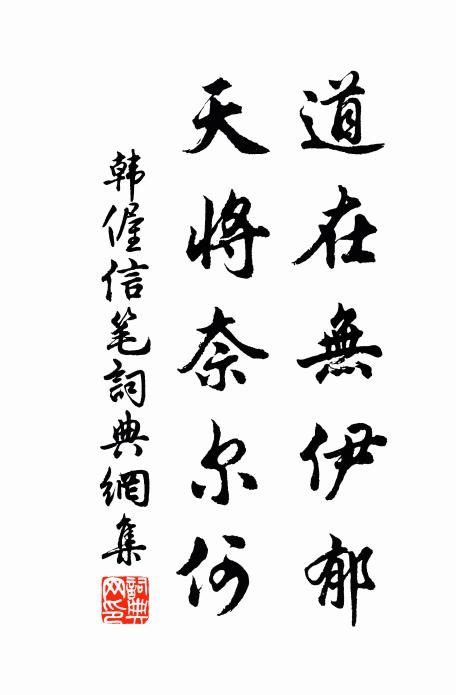 道在無伊郁
天將奈尔何
韩偓信笔詞典網集
詞典
网印